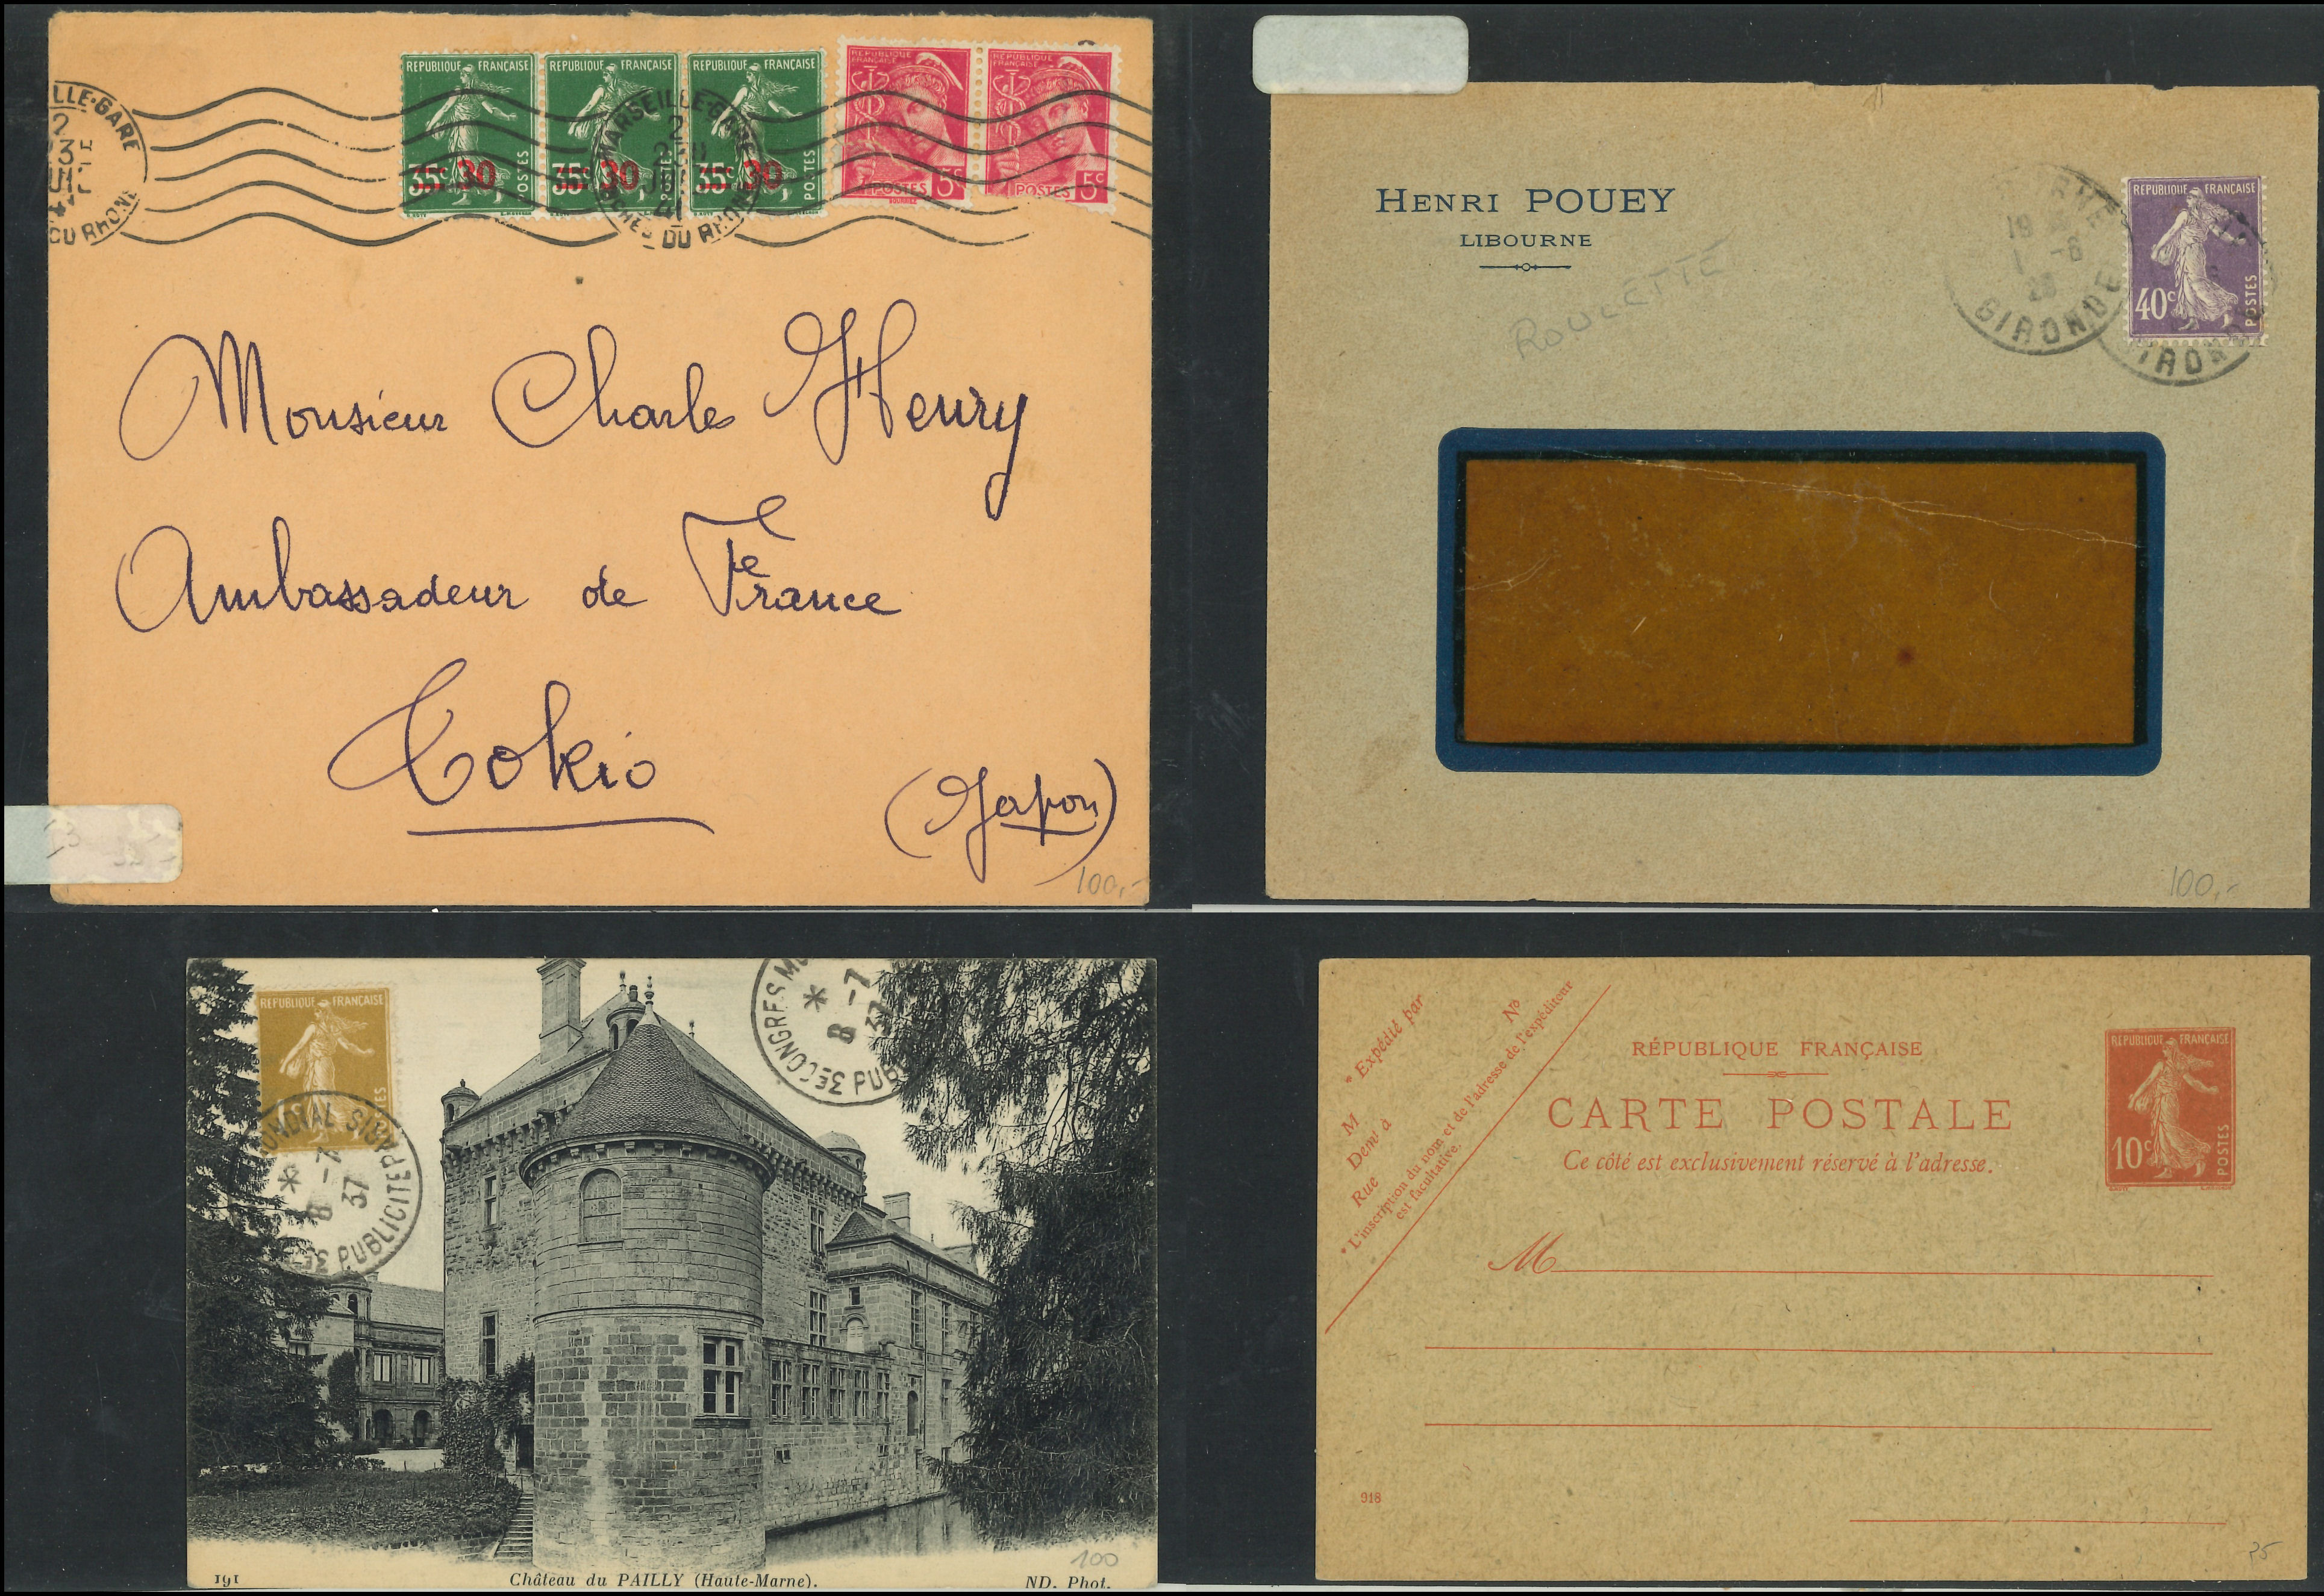 LLE-GARE
DU RHONE
REPUBLIQUE FRANÇAISE
35c 30
POSTES
REPUBLIQUE FRANÇAISE
35c 30
POSTES
REPUBLIQUE FRANÇAISE
35c 30
POSTES
MARSEILLE-GARE
DU RHONE
REPUBLIQUE FRANÇAISE
POSTES 5c
REPUBLIQUE FRANÇAISE
POSTES 5c
Monsieur Charles Henry
Ambassadeur de France
Tokio
(Japon)
100,-
HENRI POUEY
LIBOURNE
ROULETTE
GIRONDE
REPUBLIQUE FRANÇAISE
40c
POSTES
100,-
REPUBLIQUE FRANÇAISE
MONDIAL
PARIS
8 -7
37
3E PUBLICITE
3E CONGRES
8 -7
37
191
Château du PAILLY (Haute-Marne).
ND. Phot.
100
* Expédié par
M
Dem^t à
Rue
N^o
* L'inscription du nom et de l'adresse de l'expéditeur
est facultative.
RÉPUBLIQUE FRANÇAISE
CARTE POSTALE
Ce côté est exclusivement réservé à l'adresse.
REPUBLIQUE FRANÇAISE
10c
POSTES
M
918
25